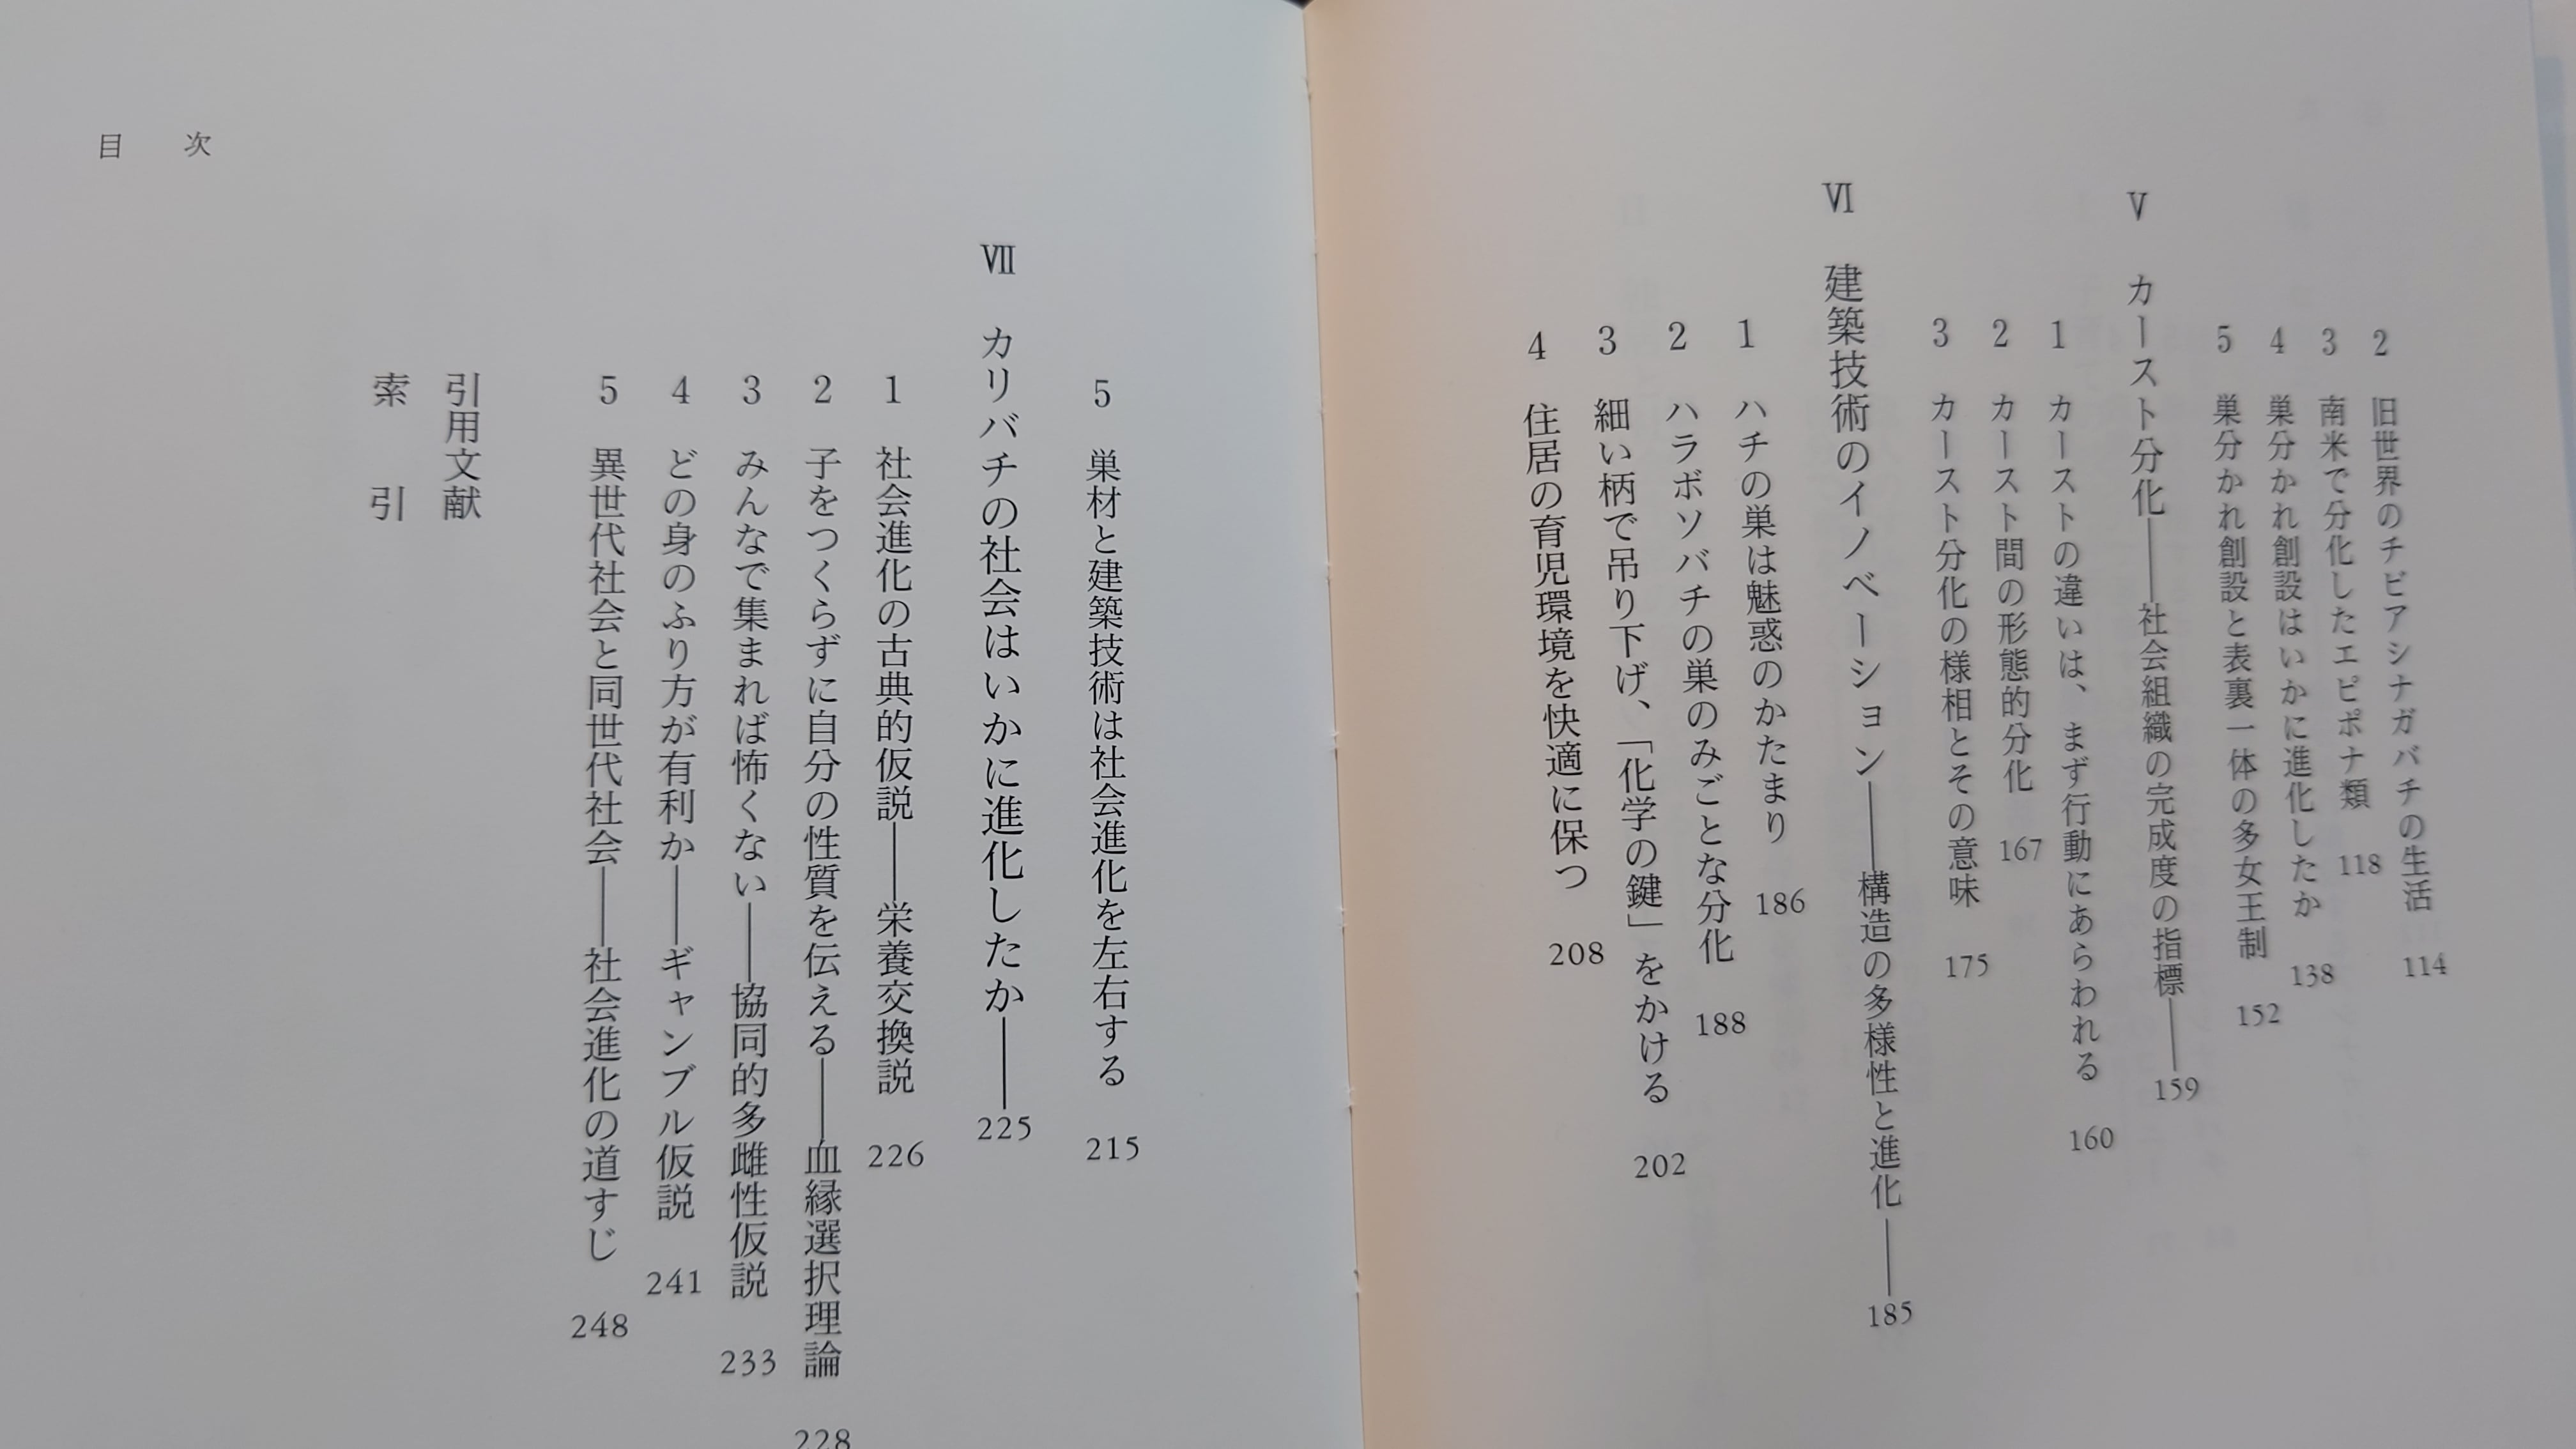 2 旧世界のチビアシナガバチの生活 114
3 南米で分化したエピポナ類 118
4 巣分かれ創設はいかに進化したか 138
5 巣分かれ創設と表裏一体の多女王制 152
Ⅴ カースト分化――社会組織の完成度の指標―― 159
1 カーストの違いは、まず行動にあらわれる 160
2 カースト間の形態的分化 167
3 カースト分化の様相とその意味 175
Ⅵ 建築技術のイノベーション――構造の多様性と進化―― 185
1 ハチの巣は魅惑のかたまり 186
2 ハラボソバチの巣のみごとな分化 188
3 細い柄で吊り下げ、「化学の鍵」をかける 202
4 住居の育児環境を快適に保つ 208
5 巣材と建築技術は社会進化を左右する 215
Ⅶ カリバチの社会はいかに進化したか―― 225
1 社会進化の古典的仮説――栄養交換説 226
2 子をつくらずに自分の性質を伝える――血縁選択理論 228
3 みんなで集まれば怖くない――協同的多雌性仮説 233
4 どの身のふり方が有利か――ギャンブル仮説 241
5 異世代社会と同世代社会――社会進化の道すじ 248
引用文献
索 引
目 次